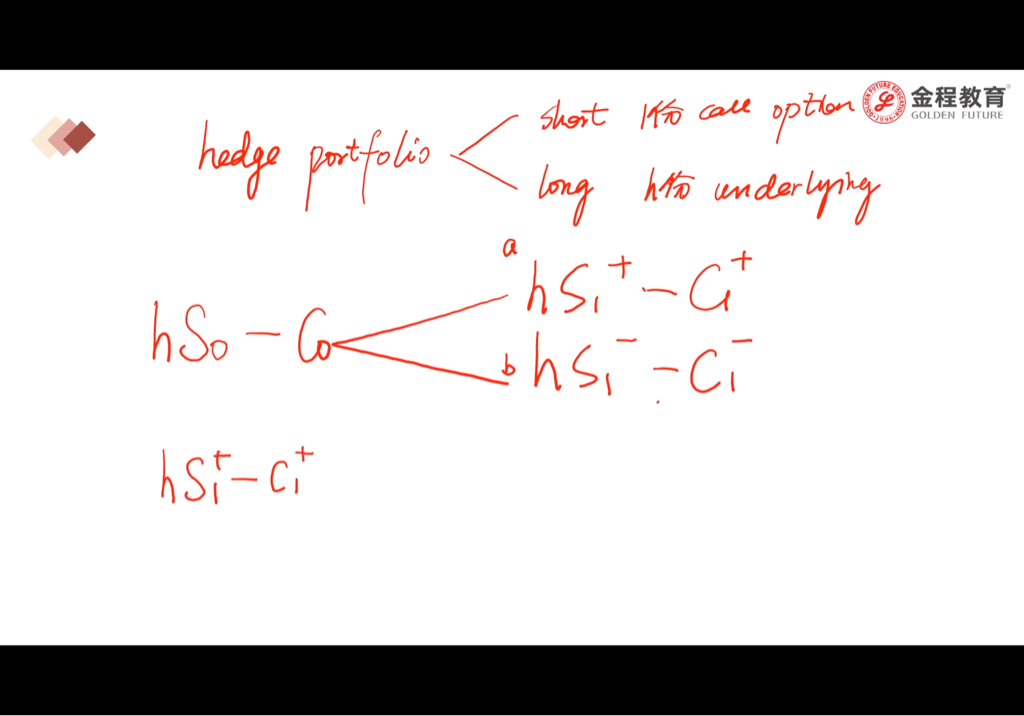 金程教育
GOLDEN FUTURE
hedge portfolio
short 1份 call option
long h份 underlying
a
hS₁⁺ - C₁⁺
hS₀ - C₀
b hS₁⁻ - C₁⁻
hS₁⁺ - C₁⁺